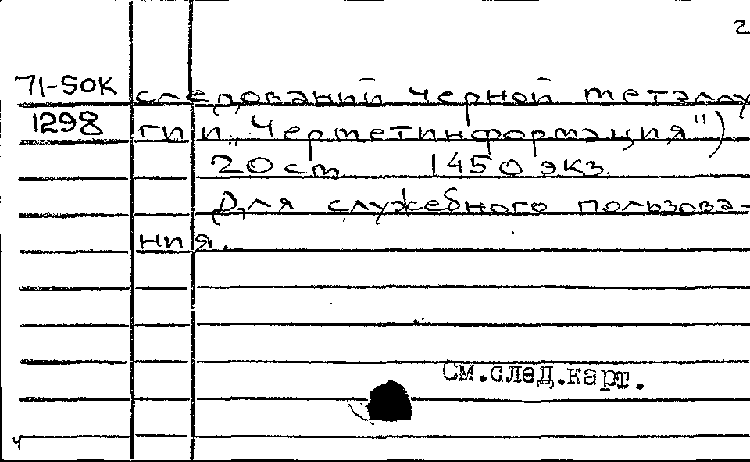 2
71-50к следований черной металлу
1298 гии „Черметинформация")
20 ст 1450 экз
Для служебного пользова-
ния.
См.след.карт.